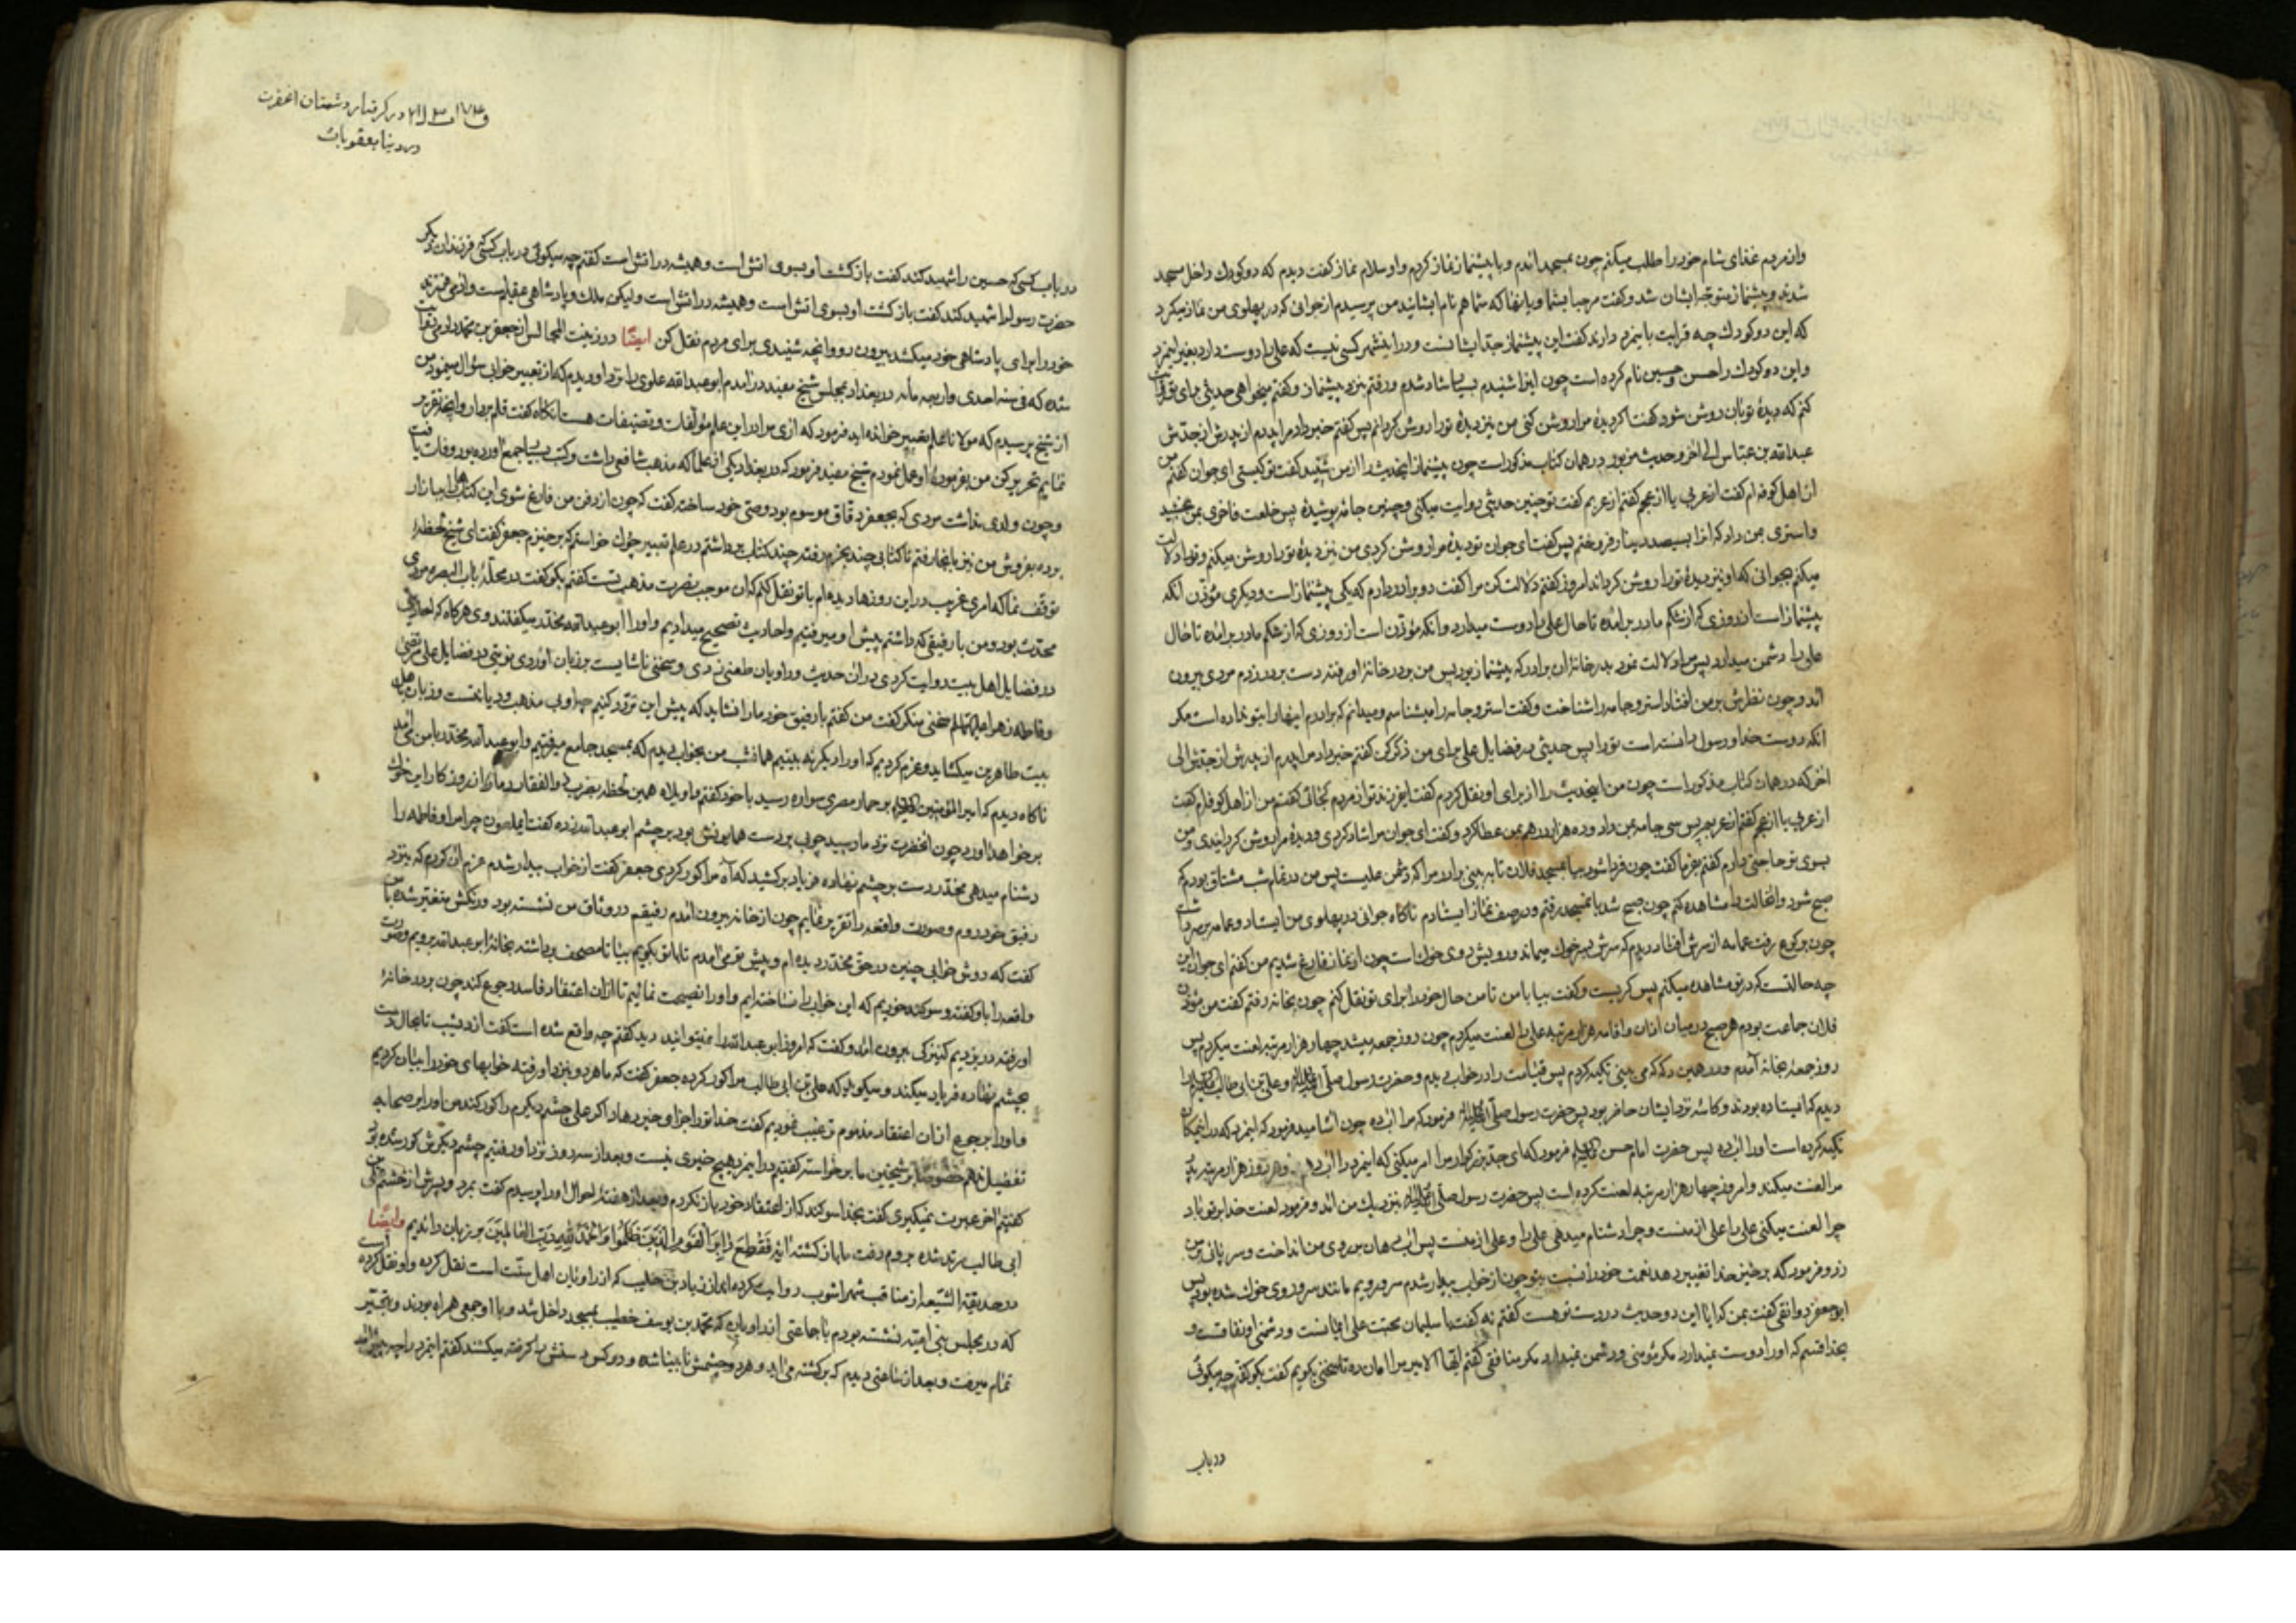 و از مردم غذای شام خود را طلب میکنم چون بمسجد امدم و با پیشنماز نماز کردم و او سلام نماز گفت دیدم که دو کودک داخل مسجد
شدند و پیشنماز متوجه ایشان شد و گفت مرحبا بشما و بانها که شما هم نام ایشانید من پرسیدم از جوانی که در پهلوی من نماز میکرد
که این دو کودک چه قرابت باینمرد دارند گفت این پیشنماز جد ایشانست و در اینشهر کسی نیست که علی را دوست دارد بغیر اینمرد
و این دو کودک را حسن و حسین نام کرده است چون اینرا شنیدم بسیار شاد شدم و رفتم بنزد پیشنماز و گفتم میخواهی حدیثی برای تو
کنم که دیدهٔ تو بان روشن شود گفت اگر دیدهٔ مرا روشن کنی من نیز دیدهٔ تو را روشن کردانم پس گفتم خبر داد مرا پدرم از پدرش از جدش
عبدالله بن عباس الی اخر و حدیث مزبور در همان کتاب مذکور است چون پیشنماز اینحدیث را از من شنید گفت تو کیستی ای جوان گفتم
از اهل کوفه ام گفت از عربی یا از عجم گفتم از عربم گفت تو چنین حدیثی روایت میکنی و چنین جامه پوشیدهٔ پس خلعت فاخری بمن بخشید
و استری بمن داد که انرا بسیصد دینار فروختم پس گفت ای جوان تو دیدهٔ مرا روشن کردی من نیز دیدهٔ تو را روشن میکنم و تو را دلالت
میکنم بجوانی که او نیز دیدهٔ تو را روشن کرداند امروز گفتم دلالت کن مرا گفت دو برادر دارم که یکی پیشنماز است و دیگری مؤذن انکه
پیشنماز است از روزی که از شکم مادر برامده تا حال علی را دوست میدارد و انکه مؤذن است از روزی که از شکم مادر برامده تا حال
علی را دشمن میدارد پس مرا دلالت نمود بدر خانهٔ ان برادر که پیشنماز بود پس من بدر خانهٔ او رفته دست بر در زدم مردی بیرون
امد و چون نظرش بر من افتاد استر و جامه را شناخت و گفت استر و جامه را میشناسم و میدانم که برادرم اینها را بتو نداده است مکر
انکه دوست خدا و رسول دانسته است تو را پس حدیثی در فضایل علی برای من ذکر کن گفتم خبر داد مرا پدرم از پدرش از جدش الی
اخر که در همان کتاب مذکور است چون من اینحدیث را از برای او نقل کردم گفت ایفرزند تو از مردم کجائی گفتم من از اهل کوفه ام گفت
از عربی یا از عجم گفتم از عربم پس سی جامه بمن داد و ده هزار درهم بمن عطا کرد و گفت ای جوان مرا شاد کردی و دیدهٔ مرا روشن کردانیدی و من
بسوی تو حاجتی دارم گفتم بفرما گفت چون فردا شود بیا بمسجد فلان تا به بینی برادر مرا که دشمن علیست پس من در تمام شب مشتاق بودم که
صبح شود و انحالت را مشاهده کنم چون صبح شد بانمسجد رفتم و در صف نماز ایستادم ناکاه جوانی در پهلوی من ایستاد و عمامه بر سر داشت
چون برکوع رفت عمامه از سرش افتاد دیدم که سرش بسر خوک میماند و رویش بروی خوک است چون از نماز فارغ شدیم من گفتم ای جوان این
چه حالتست که در تو مشاهده میکنم پس کریست و گفت بیا با من تا من حال خود را برای تو نقل کنم چون بخانه رفتم گفت من مؤذن
فلان جماعت بودم هر صبح در میان اذان و اقامه هزار مرتبه علی را لعنت میکردم چون روز جمعه میشد چهار هزار مرتبه لعنت میکردم پس
روز جمعهٔ بخانه آمدم و در همین دکه که می بینی تکیه کردم پس قیامت را در خواب دیدم و حضرت رسول صلی الله علیه واله و علی بن ابی طالب علیه السلام را
دیدم که ایستاده بودند و کاسه نزد ایشان حاضر بود پس حضرت رسول فرمود که مرا اب ده چون اشامید فرمود که اینمرد که در اینمکان
تکیه کرده است او را اب ده پس حضرت امام حسن فرمود که ای جد بزرکوار مرا امر میکنی که اینمرد را اب دهم و هر روز هزار مرتبه پدر
مرا لعنت میکند و امروز چهار هزار مرتبه لعنت کرده است پس حضرت رسول نزدیک من امد و فرمود لعنت خدا بر تو باد
چرا لعنت میکنی علی را علی از منست و چرا دشنام میدهی علی را و علی از منست پس اب دهان بر روی من انداخت و سر پائی بر من
زد و فرمود که برخیز خدا تغییر دهد نعمت خود را نسبت بتو چون از خواب بیدار شدم سر و رویم مانند سر و روی خوک شده بود پس
ابو جعفر دوانقی گفت بمن که ایا این دو حدیث در دست تو هست گفتم نه گفت یا سلیمان محبت علی ایمانست و دشمنی او نفاقست و
بخدا قسم که او را دوست نمیدارد مکر مؤمنی و دشمن نمیدارد مکر منافقی گفتم ایها الامیر مرا امان ده تا سخنی بگویم گفت بگو گفتم چه میکوئی
در باب
در گرفتار دشمنان انحضرت
در دنیا بعقوبات
در باب کسی که حسین را شهید کند گفت بازکشت او بسوی اتش است و همیشه در اتش است گفتم چه میکوئی در باب کشتی فرزندان دیگر
حضرت رسول را شهید کند گفت بازکشت او بسوی اتش است و همیشه در اتش است ولیکن ملک و پادشاهی عقیم است و ادمی فرزند
خود را برای پادشاهی خود میکشد بیرون رو و انچه شنیدی برای مردم نقل کن ایضًا در زینت المجالس از جعفر بن محمد دوریستی
شده که فی سنه احدی و اربعمأنه در بغداد بمجلس شیخ مفید درامدم ابو عبدالله علوی را نزد او دیدم که از تعبیر خوابی سؤال مینمود من
از شیخ پرسیدم که مولانا علم تعبیر خوانده اید فرمود که اری مرا در این علم مؤلفات و تصنیفات هست انکاه گفت قلم بردار و انچه تقریر
نمایم تحریر کن من بفرمودهٔ او عمل نمودم شیخ مفید فرمود که در بغداد یکی از علما که مذهب شافعی داشت و کتب بسیار جمع اورده بود وفات یافت
و چون ولدی نداشت مردی که بجعفر دقاق موسوم بود وصی خود ساخته گفت که چون از دفن من فارغ شوی این کتابها را ببازار
برده بفروش من نیز بانجا رفتم تا کتابی چند بخرم رفته چند کتاب برداشتم در علم تعبیر خواب خواستم که برخیزم جعفر گفت ای شیخ لحظهٔ
توقف نما که امری غریب در این روزها دیده ام با تو نقل کنم که ان موجب نصرت مذهب تست گفتم بگو گفت در محلهٔ باب البصره مردی
محدث بود و من با رفیقی که داشتم پیش او میرفتیم و احادیث تصحیح میدادیم و او را ابو عبدالله محدث میکفتند و وی هرکاه که احادیثی
در فضایل اهل بیت روایت کردی در ان حدیث و راویان طعنی زدی و سخنی ناشایست بر زبان اوردی نوبتی در فضایل علی مرتضی
و فاطمه زهرا سخنی منکر گفت من گفتم با رفیق خود ما را نشاید که پیش این تردد کنیم چه او بی مذهب و دیانتست و زبان باهل
بیت طاهرین میکشاید و عزم کردیم که او را دیگر نه بینیم همانشب من بخواب دیدم که بمسجد جامع میرفتیم و ابو عبدالله محدث با من می امد
ناکاه دیدم که امیر المؤمنین بر حمار مصری سواره رسید با خود گفتم واویلاه همین لحظه بضرب ذوالفقار دمار از روزکار این
برخواهد اورد چون انحضرت نزد ما رسید چوبی بر دست همایونش بود بر چشم ابو عبدالله زده گفت ایملعون چرا مرا و فاطمه را
دشنام میدهی محدث دست بر چشم نهاده فریاد برکشید که آه مرا کور کردی جعفر گفت از خواب بیدار شدم عزم ان کردم که بنزد
رفیق خود روم و صورت واقعه را تقریر نمایم چون از خانه بیرون امدم رفیقم در وثاق من نشسته بود و رنکش متغیر شده با من
گفت که دوش خوابی چنین در حق محدث دیده ام و پیش تو می امدم تا با تو بکویم بیا تا مصحف برداشته بخانهٔ ابو عبدالله برویم و صورت
واقعه را باو گفته و سوکند خوریم که این خواب را نساخته ایم و او را نصیحت نمائیم تا از ان اعتقاد فاسد رجوع کند چون بدر خانهٔ
او رفته در بزدیم کنیزکی بیرون امد و گفت که امروز ابو عبدالله را نمیتوانید دید گفتم چه واقع شده است گفت از دیشب تا بحال دست
بچشم نهاده فریاد میکند و میکوید که علی بن ابی طالب مرا کور کرده جعفر گفت که ما هر دو بنزد او رفته خوابهای خود را بیان کردیم
و او را برجوع از ان اعتقاد مذموم ترغیب نمودیم گفت خدا تو را جزای خیر دهاد اکر علی چشم دیگرم را کور کند من او را بر صحابه
تفضیل ندهم خصوصًا بر شیخین ما برخواسته گفتیم در اینمرد هیچ خیری نیست و بعد از سه روز نزد او رفتیم چشم دیگرش کور شده بود
گفتیم اخر عبرت نمیکیری گفت بخدا سوکند که از اعتقاد خود باز نکردم و بعد از هفتهٔ احوال او را پرسیدم گفت بمرد و پسرش از خشم علی بن
ابی طالب مرتد شده بروم رفت ما باز کشته ایه فَقُطِعَ دَابِرُ الْقَوْمِ الَّذِینَ ظَلَمُوا وَالْحَمْدُ لِلَّهِ رَبِّ الْعَالَمِینَ بر زبان راندیم وایضًا
در حدیقة الشیعه از مناقب شهراشوب روایت کرده از زیاد بن کلیب که از راویان اهل سنت است نقل کرده و او نقل کرده
که در مجلس بنی امیه نشسته بودم با جماعتی از راویان که محمد بن یوسف خطیب بمسجد داخل شد و با او جمعی همراه بودند و بتجبر
تمام میرفت و بعد از ساعتی دیدم که برکشته می اید و هر دو چشمش نابینا شده و دو کس دستش را کرفته میکشند گفتم اینمرد را چه